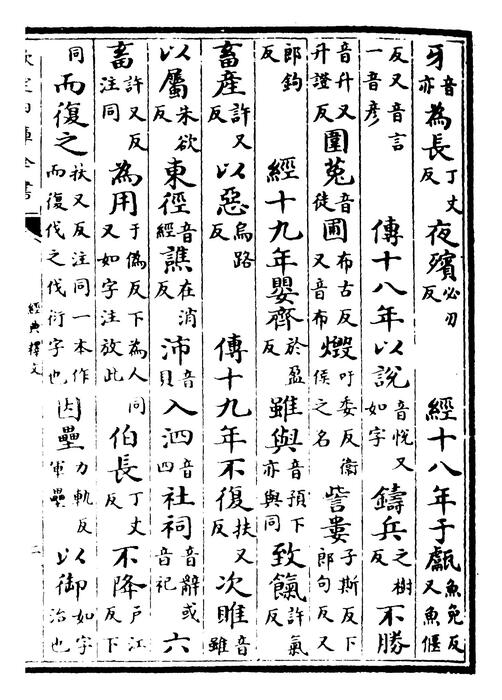 牙音亦為長丁丈反夜殯必刃反 經十八年于甗魚免反又魚偃
反又音言一音彥 傳十八年以說音悅又如字鑄兵之樹反不勝
音升又升證反圍菟音徒圃布古反又音布燬吁委反衛侯之名訾婁子斯反下郎句反又
郎鉤反 經十九年嬰齊於盈反雖與音預下亦與同致餼許氣反
畜產許又反以惡烏路反 傳十九年不復扶又反次睢音雖
以屬朱欲反東徑音經譙在消反沛音貝入泗音四社祠音辭或音祀六
畜許又反注同為用于偽反下為人同又如字注放此伯長丁丈反不降戶江反下
同而復之扶又反注同一本作而復伐之伐衍字也因壘力軌反軍壘以御如字治也
欽定四庫全書
經典釋文
二